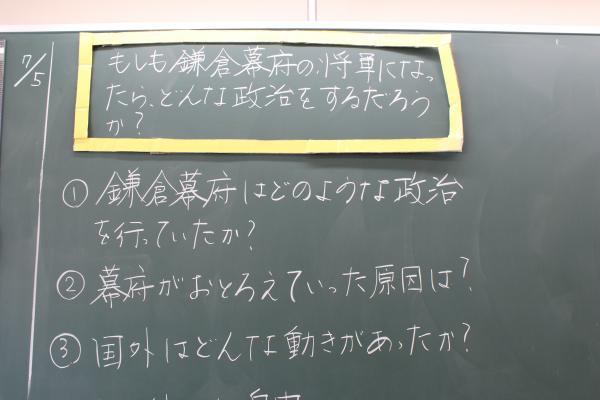 7/5
もしも鎌倉幕府の将軍になっ
たら、どんな政治をするだろう
か?
① 鎌倉幕府はどのような政治
を行っていたか?
② 幕府がおとろえていった原因は?
③ 国外はどんな動きがあったか?